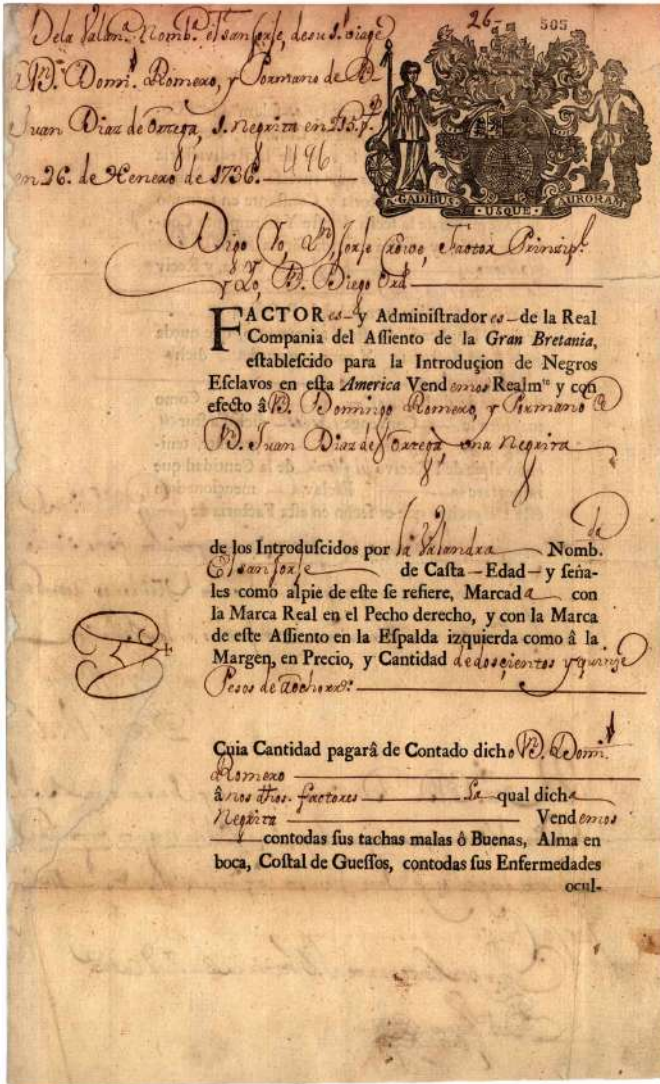 26- 505
Dela Valan.ª Nomb.ª el san Jorje, desu 1.º viage
â D.ⁿ Dom.º Romero, y Hermano de D.ⁿ
Juan Diaz de Ortega, 1. negrita en 215 p.s
en 26. de Henero de 1736. 496
A GADIBUS USQUE AURORAM
Digo Yo, D.ⁿ Jorje Crowe, Factor Prinzip.l
y Yo, D. Diego Ord
FACTORes-y Administradores-de la Real
Compania del Aſſiento de la Gran Bretania,
eſtableſcido para la Introduçion de Negros
Eſclavos en eſta America Vendemos Realm.te y con
efecto â D. Domingo Romero, y Hermano de
D. Juan Diaz de Ortega, una negrita
de los Introduſcidos por la Valandra Nomb.da
El san Jorje de Caſta-Edad-y ſeña-
les como alpie de eſte ſe refiere, Marcada con
la Marca Real en el Pecho derecho, y con la Marca
de eſte Aſſiento en la Eſpalda izquierda como â la
Margen, en Precio, y Cantidad de doscientos y quinze
Pesos de aocho rr.s
Cuia Cantidad pagarâ de Contado dicho D. Dom.º
Romero
â nos dhos. factores La qual dicha
Negrita Vendemos
contodas ſus tachas malas ô Buenas, Alma en
boca, Coſtal de Gueſſos, contodas ſus Enfermedades
ocul-